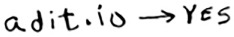 adit.io → YES